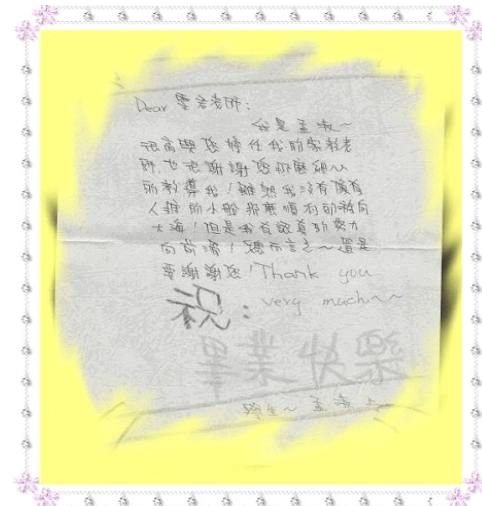 Dear 老師:
我是孟
很高興您擔任我的家教老
師,也很謝謝您那麼細心
的教導我!雖然我沒有像有
人雖的小船那麼順利的航向
大海!但是我有認真努力
向前!總而言之~還是
要謝謝您!Thank you
祝: very much~~
畢業快樂
學生~孟 上